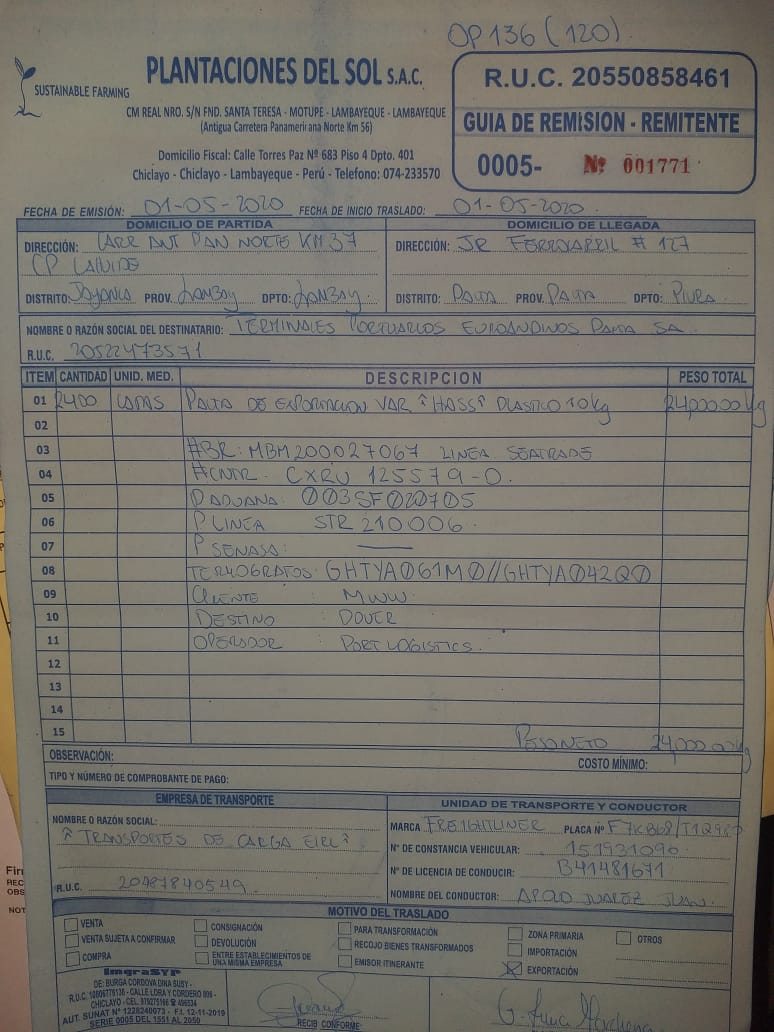 OP 136 (120)
SUSTAINABLE FARMING
PLANTACIONES DEL SOL S.A.C.
CM REAL NRO. S/N FND. SANTA TERESA - MOTUPE - LAMBAYEQUE - LAMBAYEQUE
(Antigua Carretera Panamericana Norte Km 56)
Domicilio Fiscal: Calle Torres Paz Nº 683 Piso 4 Dpto. 401
Chiclayo - Chiclayo - Lambayeque - Perú - Telefono: 074-233570
R.U.C. 20550858461
GUIA DE REMISION - REMITENTE
0005- Nº 001771
FECHA DE EMISIÓN: 01-05-2020 FECHA DE INICIO TRASLADO: 01-05-2020
DOMICILIO DE PARTIDA
DIRECCIÓN: CARR ANT PAN NORTE KM 37
CP
DISTRITO: PROV. Lambay DPTO: Lambay.
DOMICILIO DE LLEGADA
DIRECCIÓN: JR FERROCARRIL # 127
DISTRITO: PAITA PROV. PAITA DPTO: PIURA
NOMBRE O RAZÓN SOCIAL DEL DESTINATARIO: TERMINALES PORTUARIOS EUROANDINOS PAITA SA
R.U.C. 20522473571
ITEM CANTIDAD UNID. MED. DESCRIPCION PESO TOTAL
01 2400 CAJAS PALTA DE EXPORTACION VAR "HASS" PLASTICO 10kg 24000.00 kg
02
03 #BR: MBM200027067 LINEA SEATRADE
04 #CNTR. CXRU 125579-0.
05 P ADUANA: 003SF020705
06 P LINEA STR 210006
07 P SENASA:
08 TERMOGRAFOS: GHTYA061M0//GHTYA042Q0
09 CLIENTE : MWW
10 DESTINO : DOVER
11 OPERADOR : PORT LOGISTICS.
12
13
14
15 PESO NETO 24,000.00 kg
OBSERVACIÓN: COSTO MÍNIMO:
TIPO Y NÚMERO DE COMPROBANTE DE PAGO:
EMPRESA DE TRANSPORTE
NOMBRE O RAZÓN SOCIAL:
"TRANSPORTES DE CARGA EIRL"
R.U.C. 20487840549
UNIDAD DE TRANSPORTE Y CONDUCTOR
MARCA FREIGHTLINER PLACA Nº
Nº DE CONSTANCIA VEHICULAR: 151931090
Nº DE LICENCIA DE CONDUCIR: B41481671
NOMBRE DEL CONDUCTOR: APOLO JUAREZ JUAN.
MOTIVO DEL TRASLADO
VENTA
VENTA SUJETA A CONFIRMAR
COMPRA
CONSIGNACIÓN
DEVOLUCIÓN
ENTRE ESTABLECIMIENTOS DE UNA MISMA EMPRESA
PARA TRANSFORMACIÓN
RECOJO BIENES TRANSFORMADOS
EMISOR ITINERANTE
ZONA PRIMARIA
IMPORTACIÓN
EXPORTACIÓN
OTROS
ImgraSYP
DE: BURGA CORDOVA DINA SUSY -
R.U.C. 10806779136 - CALLE LORA Y CORDERO 806 -
CHICLAYO - CEL. 979275166 496534
AUT. SUNAT Nº 1228240073 - F.I. 12-11-2019
SERIE 0005 DEL 1551 AL 2050
RECIB CONFORME